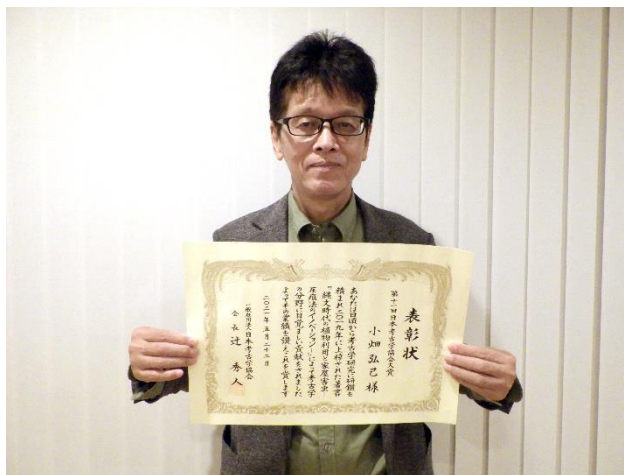 表彰状
第十一回日本考古学協会大賞
小畑弘己様
あなたは日頃から考古学研究に研鑽を
積まれ二〇一九年に上梓された著書
『縄文時代の植物利用と家屋害虫-
圧痕法のイノベーション-』によって考古学
の分野に目覚ましい貢献をされました
よってその業績を讃えこれを賞します
二〇二一年五月二十二日
一般社団法人日本考古学協会
会長 辻 秀人